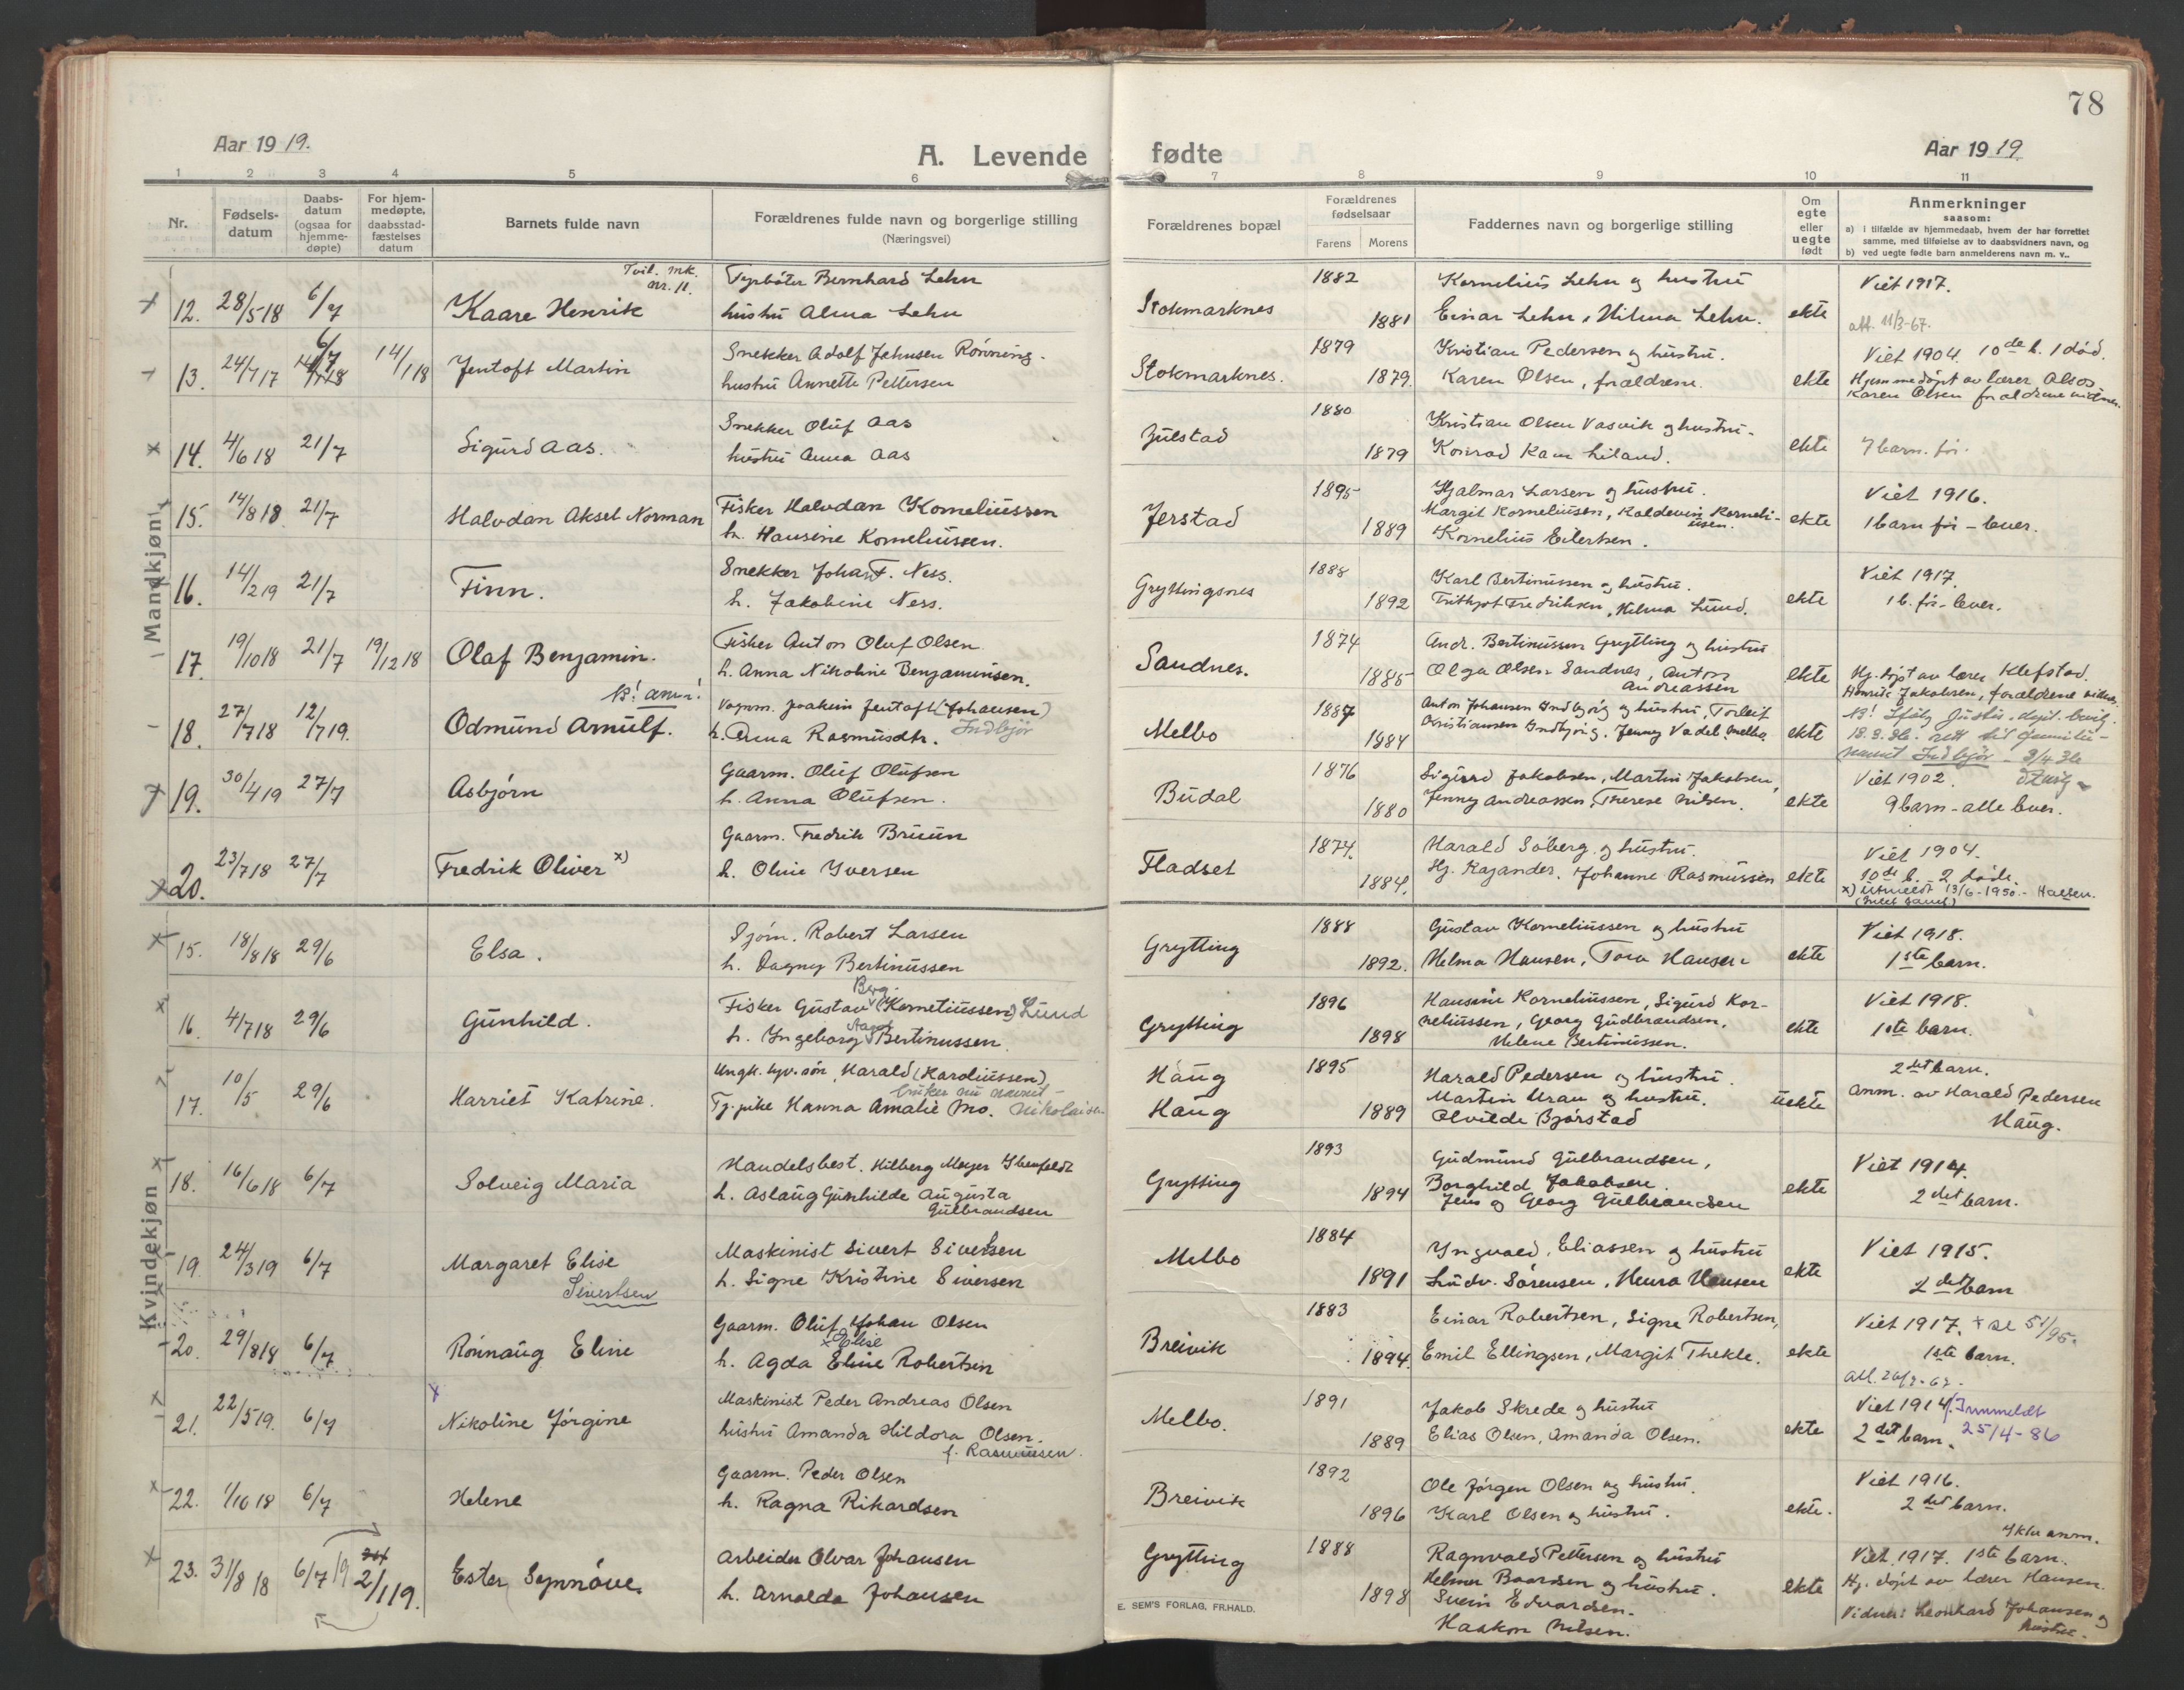 78
Aar 1919.
A. Levende fødte
Aar 1919
1 2 3 4 5 6 7 8 9 10 11
Nr.
Fødsels-
datum
Daabs-
datum
(ogsaa for
hjemme-
døpte)
For hjem-
medøpte,
daabsstad-
fæstelses
datum
Barnets fulde navn
Forældrenes fulde navn og borgerlige stilling
(Næringsvei)
Forældrenes bopæl
Forældrenes
fødselsaar
Farens Morens
Faddernes navn og borgerlige stilling
Om
egte
eller
uegte
født
Anmerkninger
saasom:
a) i tilfælde av hjemmedaab, hvem der har forrettet
samme, med tilføielse av to daabsvidners navn, og
b) ved uegte fødte barn anmelderens navn m. v..
Mandkjøn
12. 28/5 18 6/7
Tvil. mk.
nr. 11.
Kaare Henrik
Bernhard Lehn
hustru Alma Lehn
Stokmarknes
1882
1881
Kornelius Lehn og hustru
Einar Lehn, Hilma Lehn.
ekte
Viet 1917.
att. 11/3-67.
13. 24/7 17 6/7 14/1 18
Jentoft Martin
Snekker Adolf Johnsen Rönning.
hustru Annette Pettersen
Stokmarknes.
1879
1879.
Kristian Pedersen og hustru.
Karen Olsen, forældrene.
ekte
Viet 1904. 10de b. 1 död.
Hjemmedöpt av lærer Alsos
Karen Olsen forældrene vidner.
14. 4/6 18 21/7
Sigurd Aas.
Snekker Oluf Aas
hustru Anna Aas
Julstad
1880
1879
Kristian Olsen Vasvik og hustru.
Konrad Kam Liland.
ekte
7 barn. för.
15. 14/8 18 21/7
Halvdan Aksel Norman
Fisker Halvdan Korneliussen
h. Hansine Korneliussen.
Jerstad
1895
1889
Hjalmar Larsen og hustru.
Margit Korneliusen, Koldevin Korneli-
usen.
Kornelius Eilertsen.
ekte
Viet 1916.
1 barn för - lever.
16. 14/2 19 21/7
Finn.
Snekker Johan F. Ness.
h. Jakobine Ness.
Gryttingsnes
1888
1892
Karl Bertinussen og hustru.
Frithjof Fredriksen, Helma Lund.
ekte
Viet 1917.
1 b. för - lever.
17. 19/10 18 21/7 19/12 18
Olaf Benjamin.
Fisker Anton Oluf Olsen
h. Anna Nikoline Benjaminsen.
Sandnes.
1874
1885
Andr. Bertinussen Grytting og hustru
Olga Olsen Sandnes, Anton
Andreassen
ekte
Hj. döpt av lærer Klefstad.
Henrik Jakobsen, forældrene vidner.
18. 27/7 18 12/7 19.
N.B! anm!
Odmund Arnulf.
Vognm. Joakim Jentoft (Johansen)
h. Anna Rasmusdtr. Indbjör
Melbo
1887
1884
Anton Johansen Indbjörg og hustru, Torleif
Kristiansen Indbjörg. Jenny Vadel Melbo.
ekte
N.B! Ifölg Justis.dept. bevilg.
18.3.36. rett til familie-
navnet Indbjör - 3/4 36
19. 30/4 19 27/7
Asbjörn
Gaarm. Oluf Olufsen
h. Anna Olufsen.
Budal
1876
1880
Sigurd Jakobsen, Martin Jakobsen,
Jenny Andreassen, Therese Nilsen.
ekte
Viet 1902.
9 barn - alle lever.
20. 23/7 18 27/7
Fredrik Oliver x)
Gaarm. Fredrik Bruun
h. Oline Iversen
Fladset
1874.
1884.
Harald Söberg og hustru.
Hj. Rajander. Johanne Rasmussen
ekte
Viet 1904.
10de b. 2 döde.
x) utmeldt 13/6-1950.
Kvindekjøn
15. 18/8 18 29/6
Elsa.
Robert Larsen
h. Dagny Bertinussen
Grytting
1888
1892.
Gustav Korneliussen og hustru
Helma Hansen, Tora Hansen
ekte
Viet 1918.
1ste barn.
16. 4/7 18 29/6
Gunhild.
Berg.
Fisker Gustav (Korneliussen) Lund
h. Ingeborg Bertinussen
Grytting
1896
1898
Hansine Korneliussen, Sigurd Kor-
neliussen, Georg Gudbrandsen.
Helene Bertinussen.
ekte
Viet 1918.
1ste barn.
17. 10/5 29/6
Harriet Katrine.
Ungk. Harald (Karoliussen)
bruker nu navnet
Tj. pike Hanna Amalie Mo. Nikolaisen
Haug
Haug
1895
1889
Harald Pedersen og hustru.
Martin Uran og hustru.
Olvilde Bjørstad
uekte
2det barn.
Anm. av Harald Pedersen
Haug.
18. 16/6 18 6/7
Solveig Maria
Handelsbest. Hilberg Meyer Ibenfeldt
h. Aslaug Gunhilde Augusta
Gulbrandsen
Grytting
1893
1894
Gudmund Gulbrandsen,
Borghild Jakobsen.
Jens og Georg Gulbrandsen
ekte
Viet 1914.
2det barn.
19. 24/3 19 6/7
Margaret Elise
Sivertsen
Maskinist Sivert Sivertsen
h. Signe Kristine Siversen
Melbo
1884
1891
Yngvald Eliassen og hustru
Ludv. Sörensen, Henra Hansen
ekte
Viet 1915.
2det barn
20. 29/8 18 6/7
Rönnaug Eline
Gaarm. Oluf Johan Olsen
x Elise
h. Agda Eline Robertsen
Breivik
1883
1894.
Einar Robertsen, Signe Robertsen,
Emil Ellingsen, Margit Thekle.
ekte
Viet 1917. x se 51/95.
1ste barn.
21. 22/5 19. 6/7
Nikoline Jörgine
Maskinist Peder Andreas Olsen
hustru Amanda Hildora Olsen.
f. Rasmussen.
Melbo.
1891
1889
Jakob Skrede og hustru
Elias Olsen, Amanda Olsen.
ekte
Viet 1914. Innmeldt
2det barn. 25/4-86
22. 1/10 18 6/7
Helene
Gaarm. Peder Olsen
h. Ragna Rikardsen
Breivik
1892
1896
Ole Jörgen Olsen og hustru.
Karl Olsen og hustru.
ekte.
Viet 1916.
2det barn.
23. 31/8 18 6/7 19 2/1 19.
Ester Synnöve
Arbeider Olvar Johansen
h. Arnolda Johansen
Grytting
1888
1898
Ragnvald Pettersen og hustru
Helmer Baardsen og hustru.
Svein Edvardsen.
Haakon Nilsen.
ekte
Viet 1917. 1ste barn.
Hj. döpt av lærer Hansen.
Vidner: Leonhard Johansen og
hustru.
E. SEM'S FORLAG, FR.HALD.